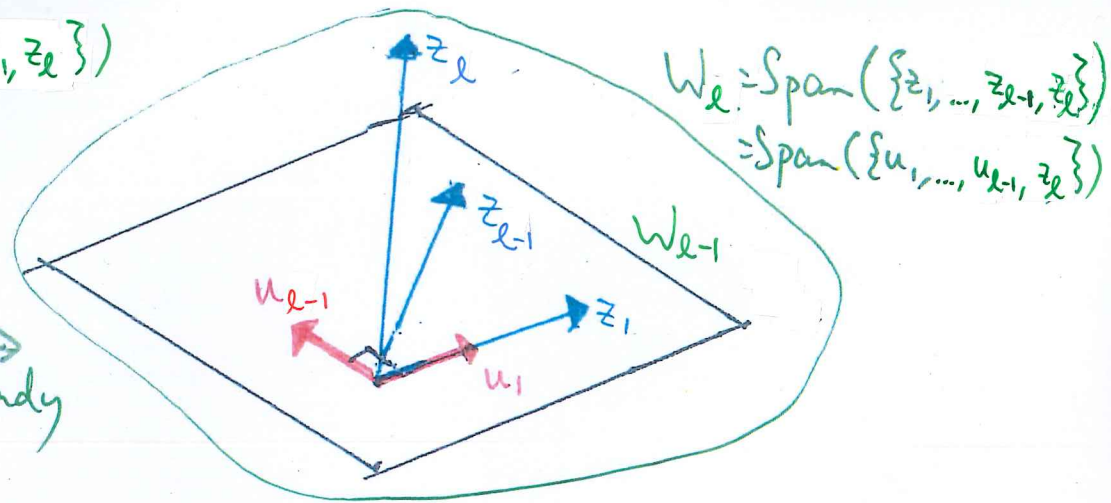 , z_ℓ })
z_ℓ
W_ℓ = Span({z_1, ..., z_{ℓ-1}, z_ℓ})
= Span({u_1, ..., u_{ℓ-1}, z_ℓ})
z_{ℓ-1}
W_{ℓ-1}
u_{ℓ-1}
z_1
u_1